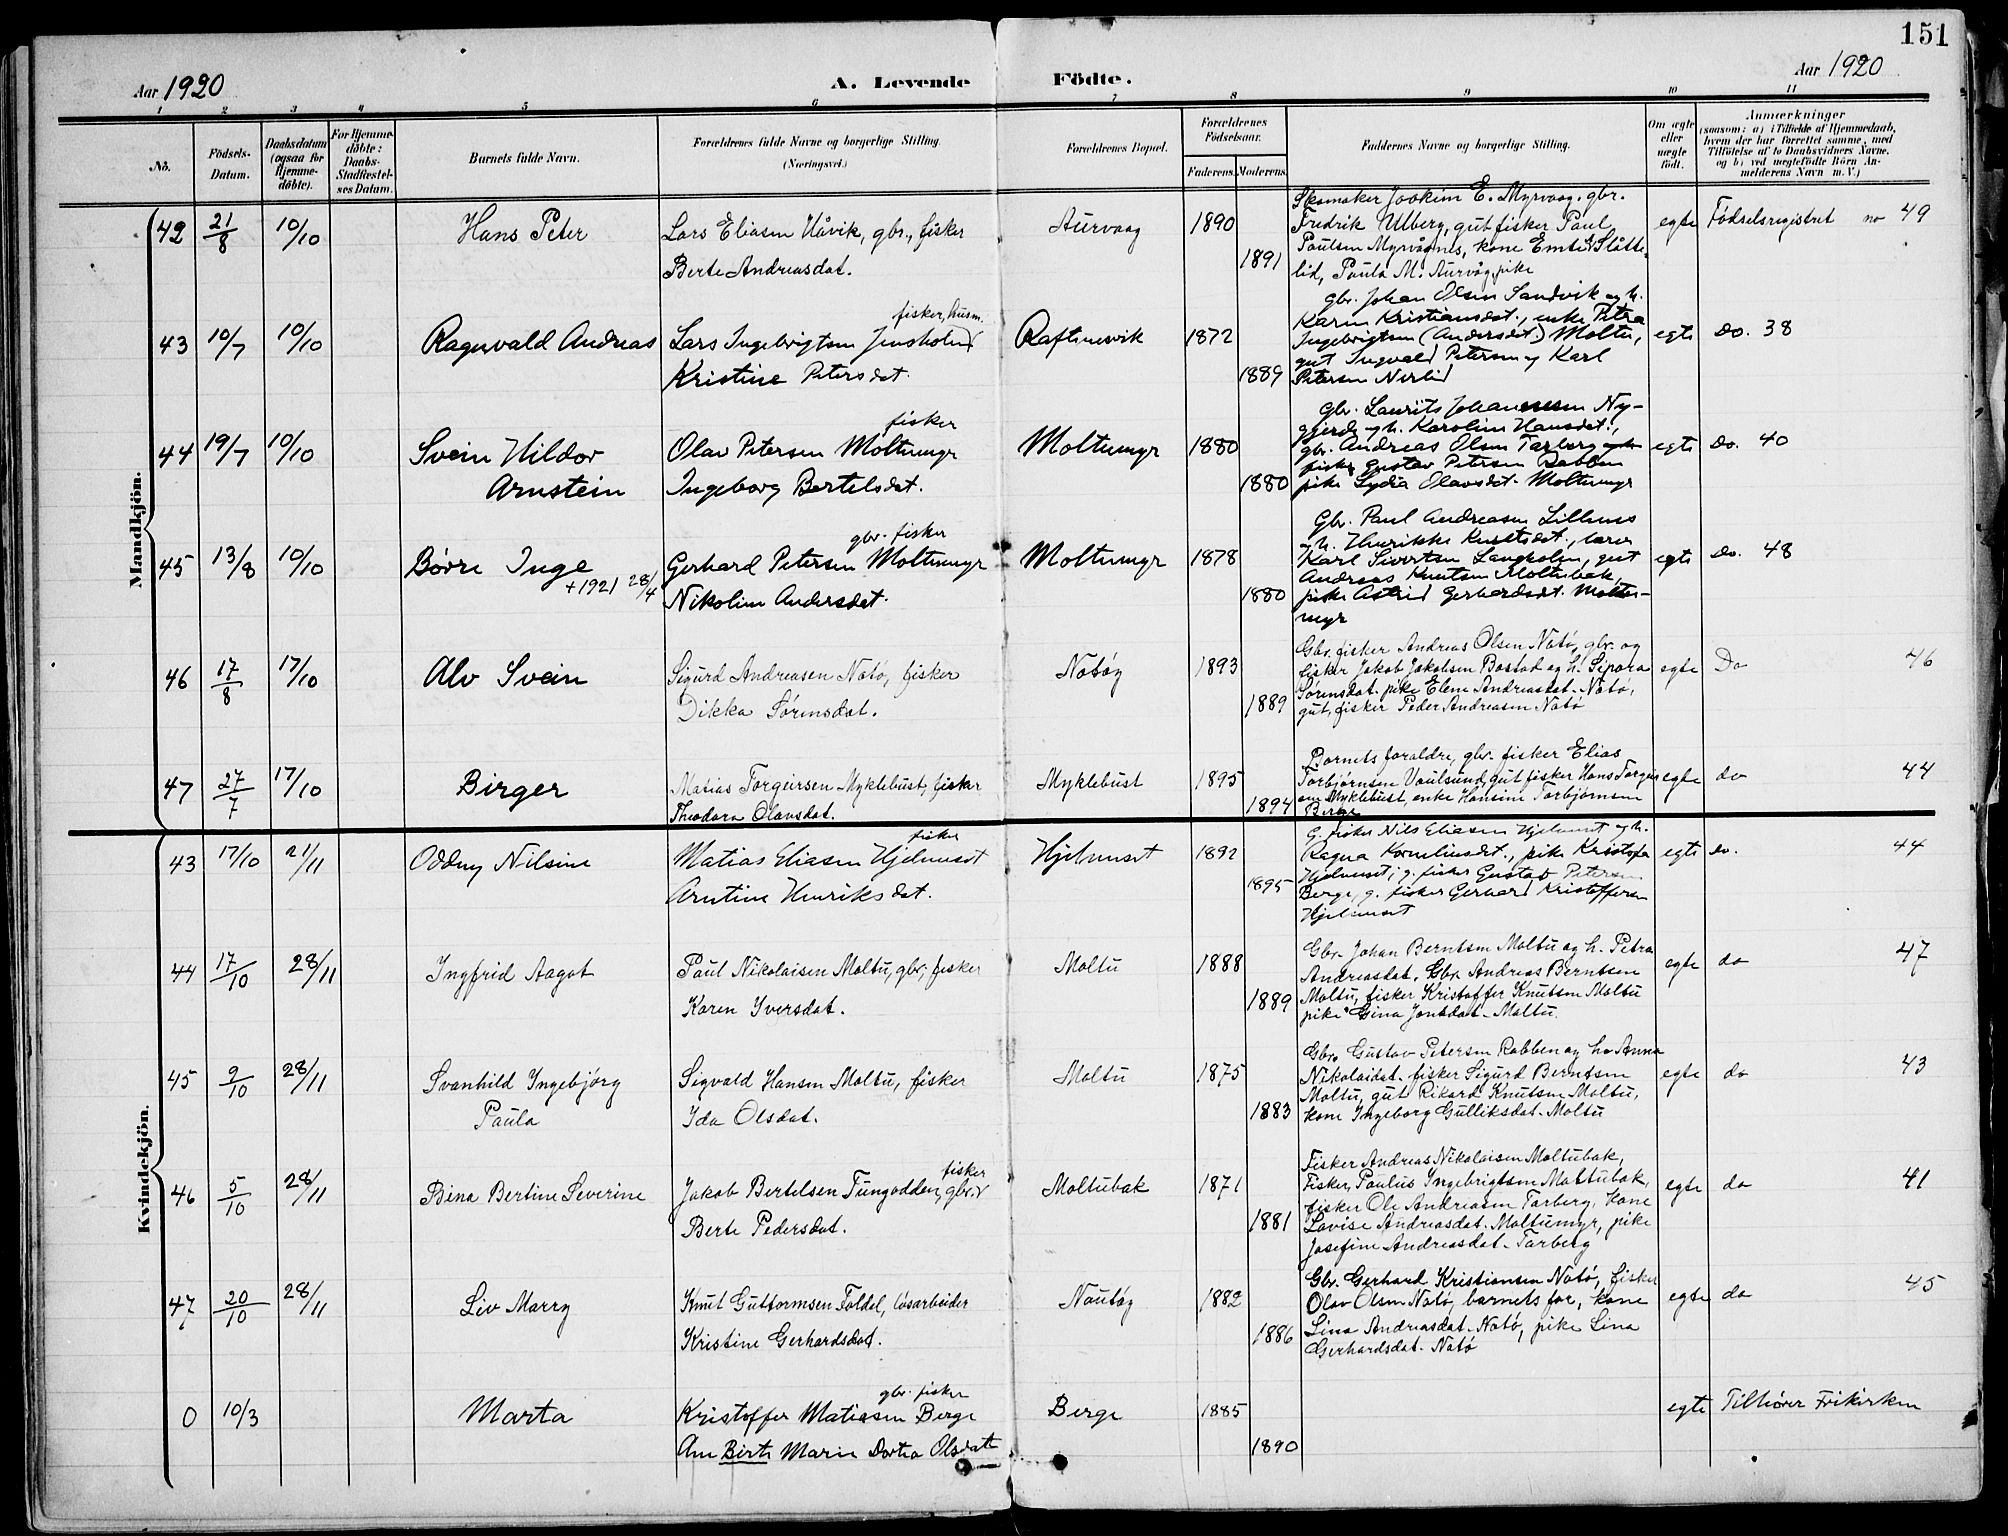 151
Aar 1920 A. Levende Födte. Aar 1920
1 2 3 4 5 6 7 8 9 10 11
No.
Födsels-
Datum.
Daabsdatum
(ogsaa for
Hjemme-
döbte).
For Hjemme-
döbte:
Daabs-
Stadfæstel-
ses Datum.
Barnets fulde Navn.
Forældrenes fulde Navne og borgerlige Stilling.
(Næringsvei.)
Forældrenes Bopæl.
Forældrenes
Födselsaar.
Faderens. Moderens.
Faddernes Navne og borgerlige Stilling.
Om ægte
eller
uægte
födt.
Anmærkninger
(saasom: a) i Tilfælde af Hjemmedaab,
hvem der har forrettet samme, med
Tilföielse af to Daabsvidners Navne,
og b) ved uægtefödte Börn An-
melderens Navn m. V.)
Mandkjön.
42 21/8 10/10 Hans Peter
Lars Eliasen Håvik, gbr., fisker
Berte Andreasdat.
Aurvaag 1890
1891
Skomaker Joakim E. Myrvaag. gbr.
Fredrik Ulberg, gut fisker Paul
Paulsen Myrvågnes, kone Slåtte-
lid, Paula M. Aurvåg, pike
egte Fødselsregistret no 49
43 10/7 10/10 Ragnvald Andreas
fisker, husm.
Lars Ingebrigtsen Jensholm
Kristine Petersdat.
Raftenesvik 1872
1889
gbr. Johan Olsen Sandvik og h.
Karen Kristiansdat., enke Petra
Ingebrigtsen (Andersdat.) Moltu,
gut Ingvald Petersen og Karl
Petersen Nerlid
egte do. 38
44 19/7 10/10 Svein Hildor
Arnstein
fisker
Olav Petersen Moltumyr
Ingeborg Bertelsdat.
Moltumyr 1880
1880
gbr. Laurits Johannesen Ny-
gjerde og h. Karoline Hansdat.,
gbr. Andreas Olsen Tarberg
fisker Gustav Petersen Rabben
pike Lydia Olavsdat. Moltumyr
egte do. 40
45 13/8 10/10 Børre Inge
+1921 28/4
gbr. fisker
Gerhard Petersen Moltumyr
Nikoline Andersdat.
Moltumyr 1878
1880
Gbr. Paul Andreasen Lillenes
og h. Henrikke Knutsdat., lærer
Karl Sivertsen Langholm, gut
Andreas Knutsen Moltubak,
pike Astrid Gerhardsdat. Moltu-
myr
egte do. 48
46 17/8 17/10 Alv Svein
Sigurd Andreasen Notø, fisker
Dikka Sørensdat.
Notøy 1893
1889
Gbr. fisker Andreas Olsen Notø, gbr. og
fisker Jakob Jakobsen Bostad og h. Sipora
Sørensdat. pike Elene Andreasdat. Notø,
gut, fisker Peder Andreasen Notø
egte Do 46
47 27/7 17/10 Birger
Matias Torgeirsen Myklebust, fisker
Theodora Olavsdat.
Myklebust 1895
1894
Barnets foraldre, gbr. fisker Elias
Torbjørnsen Vaulsund, gut fisker Hans Torgeir-
sen Myklebust, enke Hansine Torbjørnsen
Berge
egte do 44
Kvindekjön.
43 17/10 21/11 Oddny Nilsine
fisker
Matias Eliasen Hjelmeset
Arntine Henriksdat.
Hjelmeset 1892
1895
g. fisker Nils Eliasen Hjelmeset og h.
Ragna Korneliusdt., pike Kristofa
Hjelmeset, g. fisker Gustav Petersen
Berge, g. fisker Gerhard Kristoffersen
Hjelmeset
egte do. 44
44 17/10 28/11 Ingfrid Aagot
Paul Nikolaisen Moltu, gbr, fisker
Karen Iversdat.
Moltu 1888
1889
Gbr. Johan Berntsen Moltu og h. Petra
Andreasdat. Gbr. Andreas Berntsen
Moltu, fisker Kristoffer Knutsen Moltu
pike Gina Jonsdat. Moltu.
egte do 47
45 9/10 28/11 Svanhild Ingebjørg
Paula
Sigvald Hansen Moltu, fisker
Ida Olsdat.
Moltu 1875
1883
Gbr. Gustav Petersen Rabben og h. Anna
Nikolaidat. fisker Sigurd Berntsen
Moltu, gut Rikard Knutsen Moltu,
kone Ingeborg Gulliksdat. Moltu
egte do 43
46 5/10 28/11 Stina Bertine Severine
fisker
Jakob Bertelsen Tungodden, gbr.
Berte Pedersdat.
Moltubak 1871
1881
Fisker Andreas Nikolaisen Moltubak,
Fisker, Paulus Ingebrigtsen Moltubak,
fisker Ole Andreasen Tarberg, kone
Lovise Andreasdat. Moltumyr, pike
Josefine Andreasdat. Tarberg
egte do 41
47 20/10 28/11 Liv Marry
Knut Guttormsen Foldal, løsarbeider
Kristine Gerhardsdat.
Nautøy 1882
1886
Gbr. Gerhard Kristiansen Notø, fisker
Olav Olsen Notø, barnets far, kone
Lina Andreasdat. Notø, pike Lina
Gerhardsdat. Notø
egte do 45
0 10/3 Marta
gbr. fisker
Kristoffer Matiasen Berge
Ane Birth Marie Dortea Olsdatt
Berge 1885
1890
egte Tilhører Frikirken